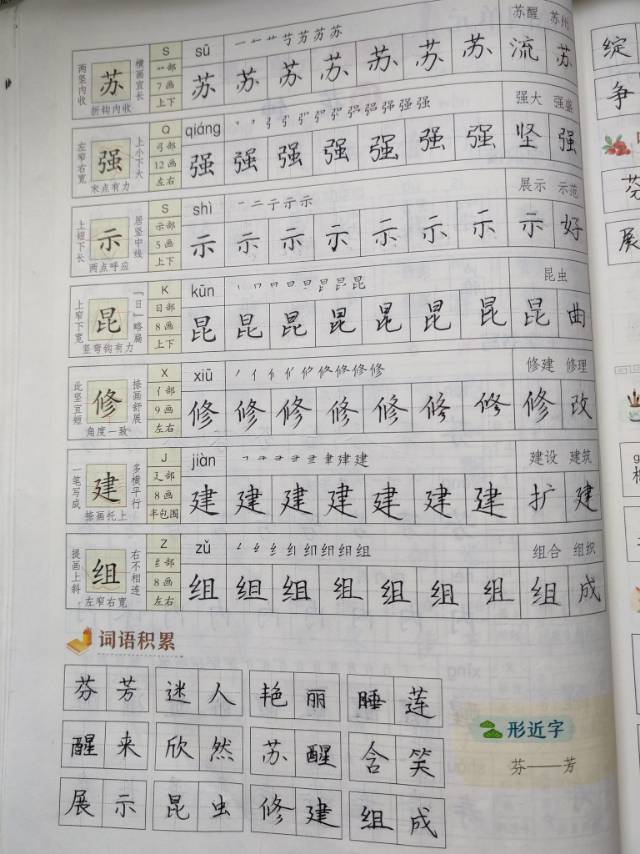 苏醒 苏州
S sū
两竖内收 苏 横画宜长 艹部 苏 苏 苏 苏 苏 苏 苏 流 苏
7画
折钩内收 上下
强大 强盛
Q qiáng
左窄右宽 强 上小下大 弓部 强 强 强 强 强 强 强 坚 强
12画
末点有力 左右
展示 示范
S shì
上短下长 示 居竖中线 示部 示 示 示 示 示 示 示 示 好
5画
两点呼应 上下
昆虫
K kūn
上窄下宽 昆 「日」略扁 日部 昆 昆 昆 昆 昆 昆 昆 昆 曲
8画
竖弯钩有力 上下
修建 修理
X xiū
此竖宜短 修 捺画舒展 亻部 修 修 修 修 修 修 修 修 改
9画
角度一致 左右
建设 建筑
J jiàn
一笔写成 建 多横平行 廴部 建 建 建 建 建 建 建 扩 建
8画
捺画托上 半包围
组合 组织
Z zǔ
提画上斜 组 右不相连 纟部 组 组 组 组 组 组 组 组 成
8画
左窄右宽 左右
词语积累
芬芳 迷人 艳丽 睡莲
醒来 欣然 苏醒 含笑
展示 昆虫 修建 组成
形近字
芬——芳
绽
争
芬
展